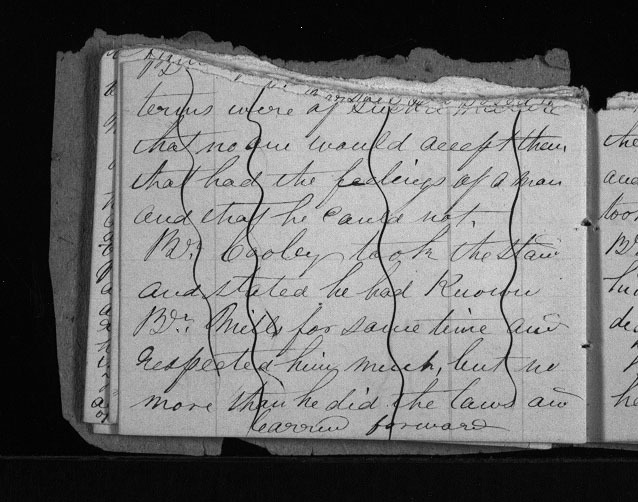 terms were of such a nature
that no one would accept them
that had the feelings of a man
and that he could not.
Br. Cooley took the stan
and stated he had Known
Br. Mills for some time and
respected him much, but no
more than he did the laws and
Carried forward
the
and
too
Br
he